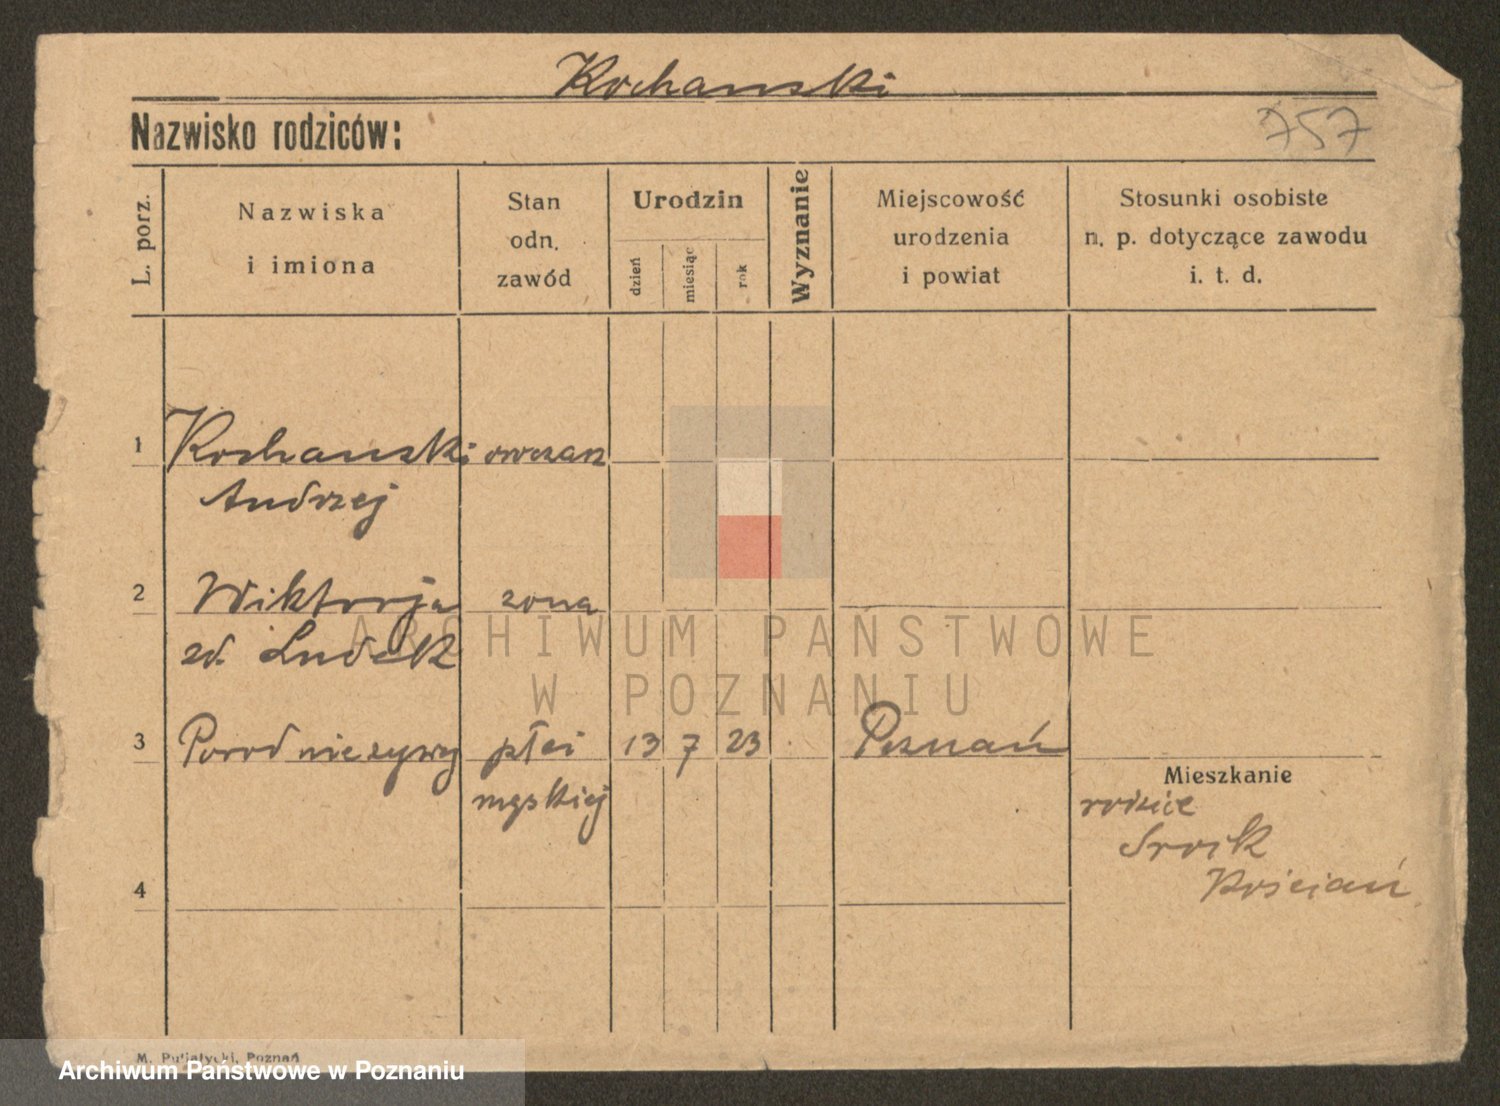 Kochanski
Nazwisko rodziców:
757
L. porz.
Nazwiska
i imiona
Stan
odn.
zawód
Urodzin
dzień
miesiąc
rok
Wyznanie
Miejscowość
urodzenia
i powiat
Stosunki osobiste
n. p. dotyczące zawodu
i. t. d.
1 Kochanski owczarz
Andrzej
2 Wiktorja zona
zd. Ludek
ARCHIWUM PAŃSTWOWE
W POZNANIU
3 Porod niezywy płci 13 7 23 Poznań
męskiej
Mieszkanie
rodzice
Srock
Kościań
4
M. Putiatycki, Poznań
Archiwum Państwowe w Poznaniu